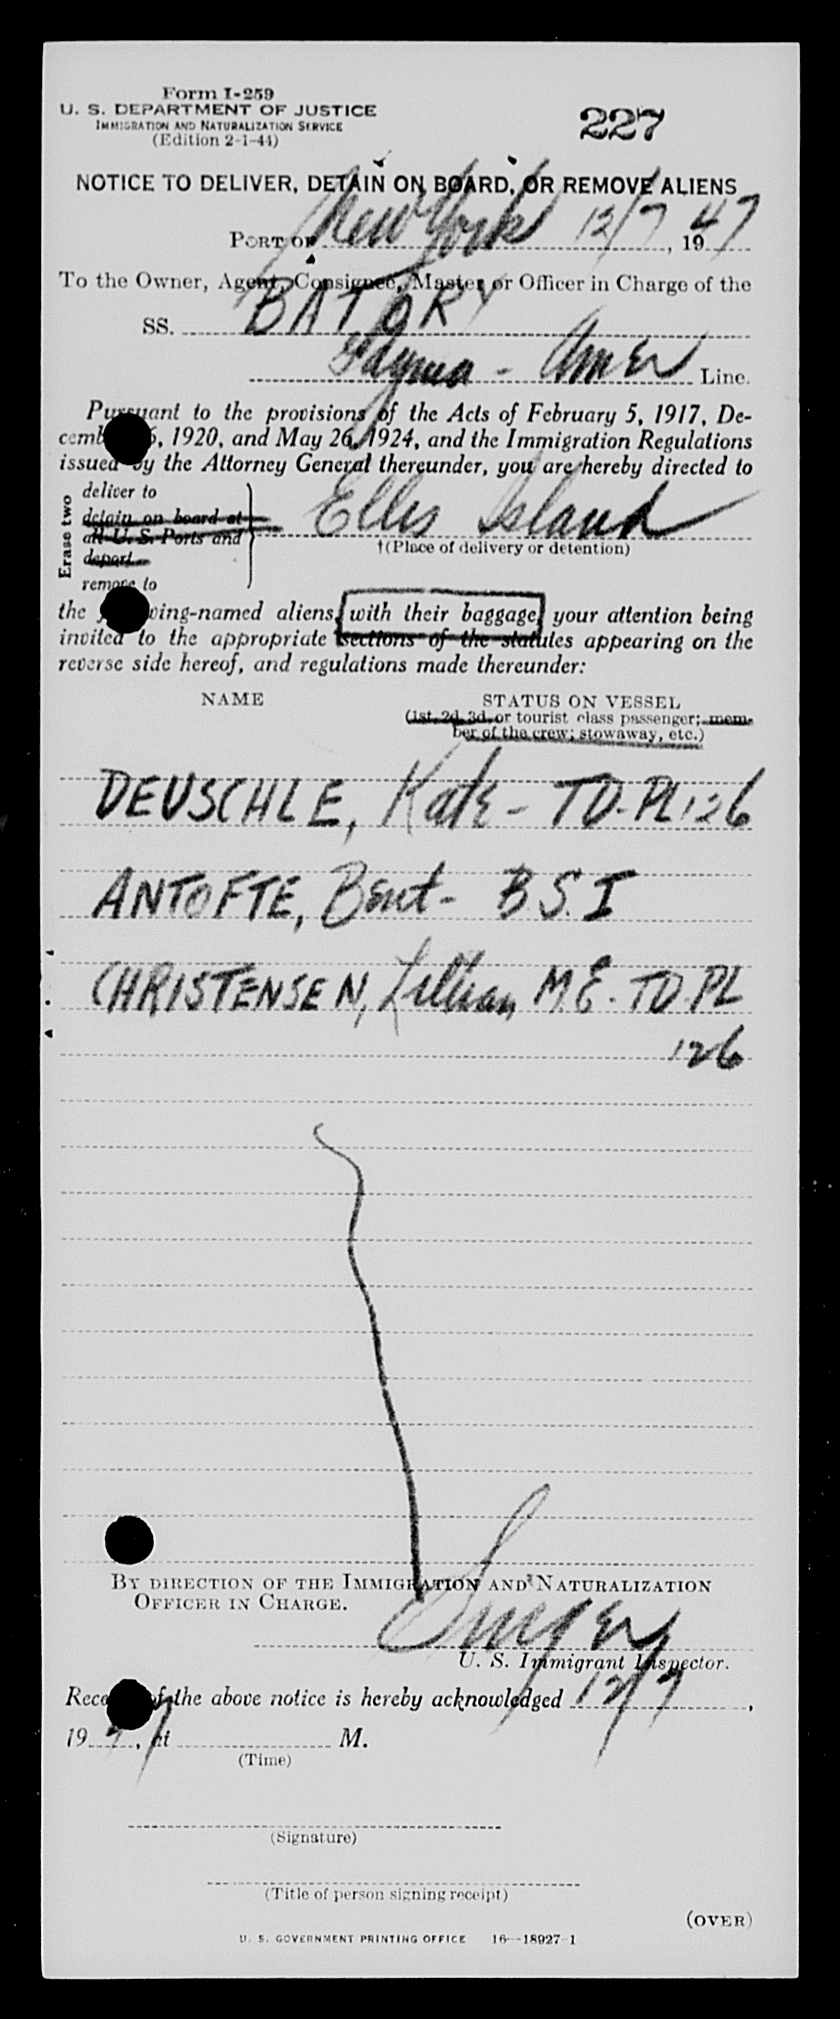 Form I-259
U. S. DEPARTMENT OF JUSTICE
IMMIGRATION AND NATURALIZATION SERVICE
(Edition 2-1-44)
227
NOTICE TO DELIVER, DETAIN ON BOARD, OR REMOVE ALIENS
PORT OF New York 12/7, 1947
To the Owner, Agent, Consignee, Master or Officer in Charge of the
SS. BATORY
Gdynia - Amer Line.
Pursuant to the provisions of the Acts of February 5, 1917, De-
cemb 6, 1920, and May 26, 1924, and the Immigration Regulations
issued by the Attorney General thereunder, you are hereby directed to
Erase two
deliver to
detain on board at
all U. S. Ports and
deport
remove to
Ellis Island
†(Place of delivery or detention)
the ing-named aliens, with their baggage, your attention being
invited to the appropriate sections of the statutes appearing on the
reverse side hereof, and regulations made thereunder:
NAME STATUS ON VESSEL
(1st, 2d, 3d, or tourist class passenger; mem-
ber of the crew; stowaway, etc.)
DEUSCHLE, Kate - TD-PL 126
ANTOFTE, Bent - B S. I
CHRISTENSEN, Lillian M. E. - TD. PL
126
BY DIRECTION OF THE IMMIGRATION AND NATURALIZATION
OFFICER IN CHARGE.
Singer
U. S. Immigrant Inspector.
Rece of the above notice is hereby acknowledged 12/7,
1947, at M.
(Time)
(Signature)
(Title of person signing receipt)
(OVER)
U. S. GOVERNMENT PRINTING OFFICE 16—18927-1